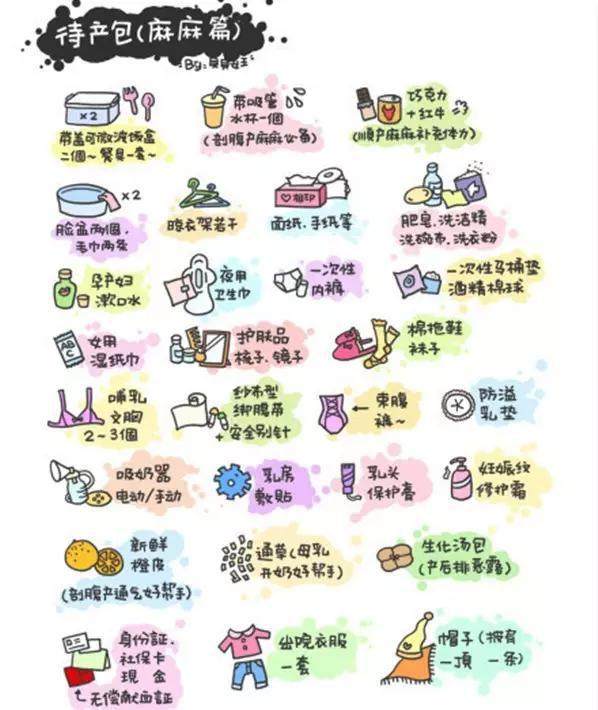 待产包(麻麻篇)
By:贝贝蛙
×2
带盖可微波饭盒
二個~餐具一套~
带吸管
水杯一個
(剖腹产麻麻必备)
巧克力
+红牛
(顺产麻麻补充体力)
×2
脸盆两個、
毛巾两条
晾衣架若干
相印
面纸、手纸等
肥皂、洗洁精
洗碗布、洗衣粉
孕产妇
漱口水
夜用
卫生巾
一次性
内裤
一次性马桶垫
酒精棉球
ABC
女用
湿纸巾
护肤品
梳子、镜子
棉拖鞋
袜子
哺乳
文胸
2~3個
纱布型
绑腹带
+安全别针
←束腹
裤~
防溢
乳垫
吸奶器
电动/手动
乳房
敷贴
乳头
保护膏
妊娠纹
修护霜
新鲜
橙皮
(剖腹产通气好帮手)
通草(母乳
开奶好帮手)
生化汤包
(产后排恶露)
身份証、
社保卡
現 金
无偿献血証
出院衣服
一套
帽子(披肩
一頂 一条)